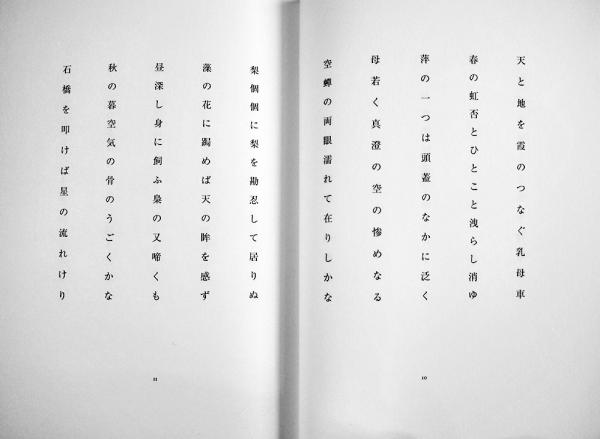 天と地を霞のつなぐ乳母車
春の虹否とひとこと洩らし消ゆ
萍の一つは頭蓋のなかに泛く
母若く真澄の空の惨めなる
空蟬の両眼濡れて在りしかな
10
梨個個に梨を勘忍して居りぬ
藻の花に跼めば天の眸を感ず
昼深し身に飼ふ梟の又啼くも
秋の暮空気の骨のうごくかな
石橋を叩けば星の流れけり
11